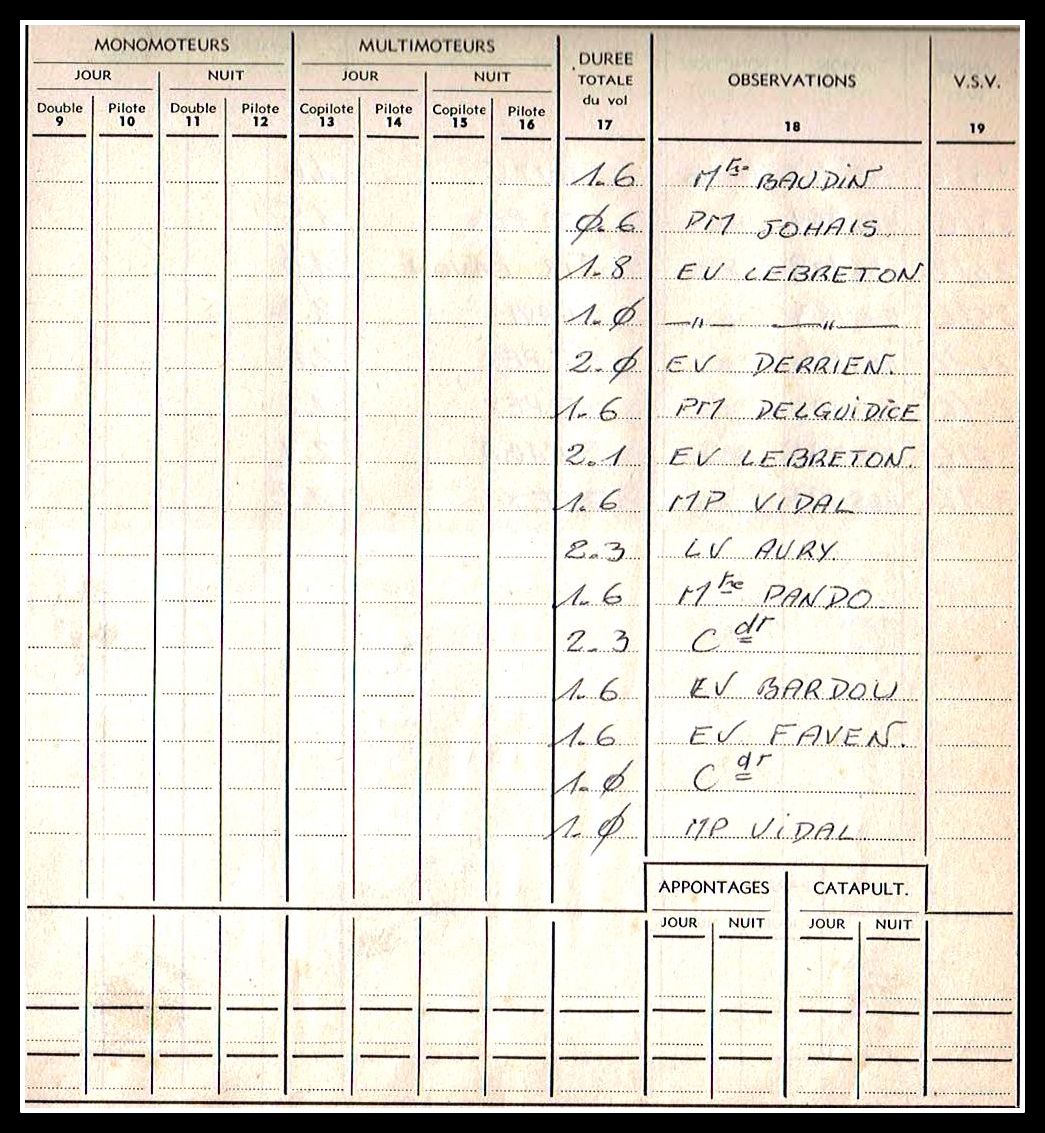 MONOMOTEURS MULTIMOTEURS DURÉE TOTALE du vol OBSERVATIONS V.S.V.
JOUR NUIT JOUR NUIT
Double Pilote Double Pilote Copilote Pilote Copilote Pilote
9 10 11 12 13 14 15 16 17 18 19
1.6 Mtre BAUDIN
Ø.6 PM JOHAIS
1.8 EV LEBRETON
1.Ø —〃— —〃—
2.Ø EV DERRIEN.
1.6 PM DELGUIDICE
2.1 EV LEBRETON.
1.6 MP VIDAL
2.3 LV AURY
1.6 Mtre PANDO
2.3 Cdr
1.6 EV BARDOU
1.6 EV FAVEN.
1.Ø Cdr
1.Ø MP ViDAL
APPONTAGES CATAPULT.
JOUR NUIT JOUR NUIT